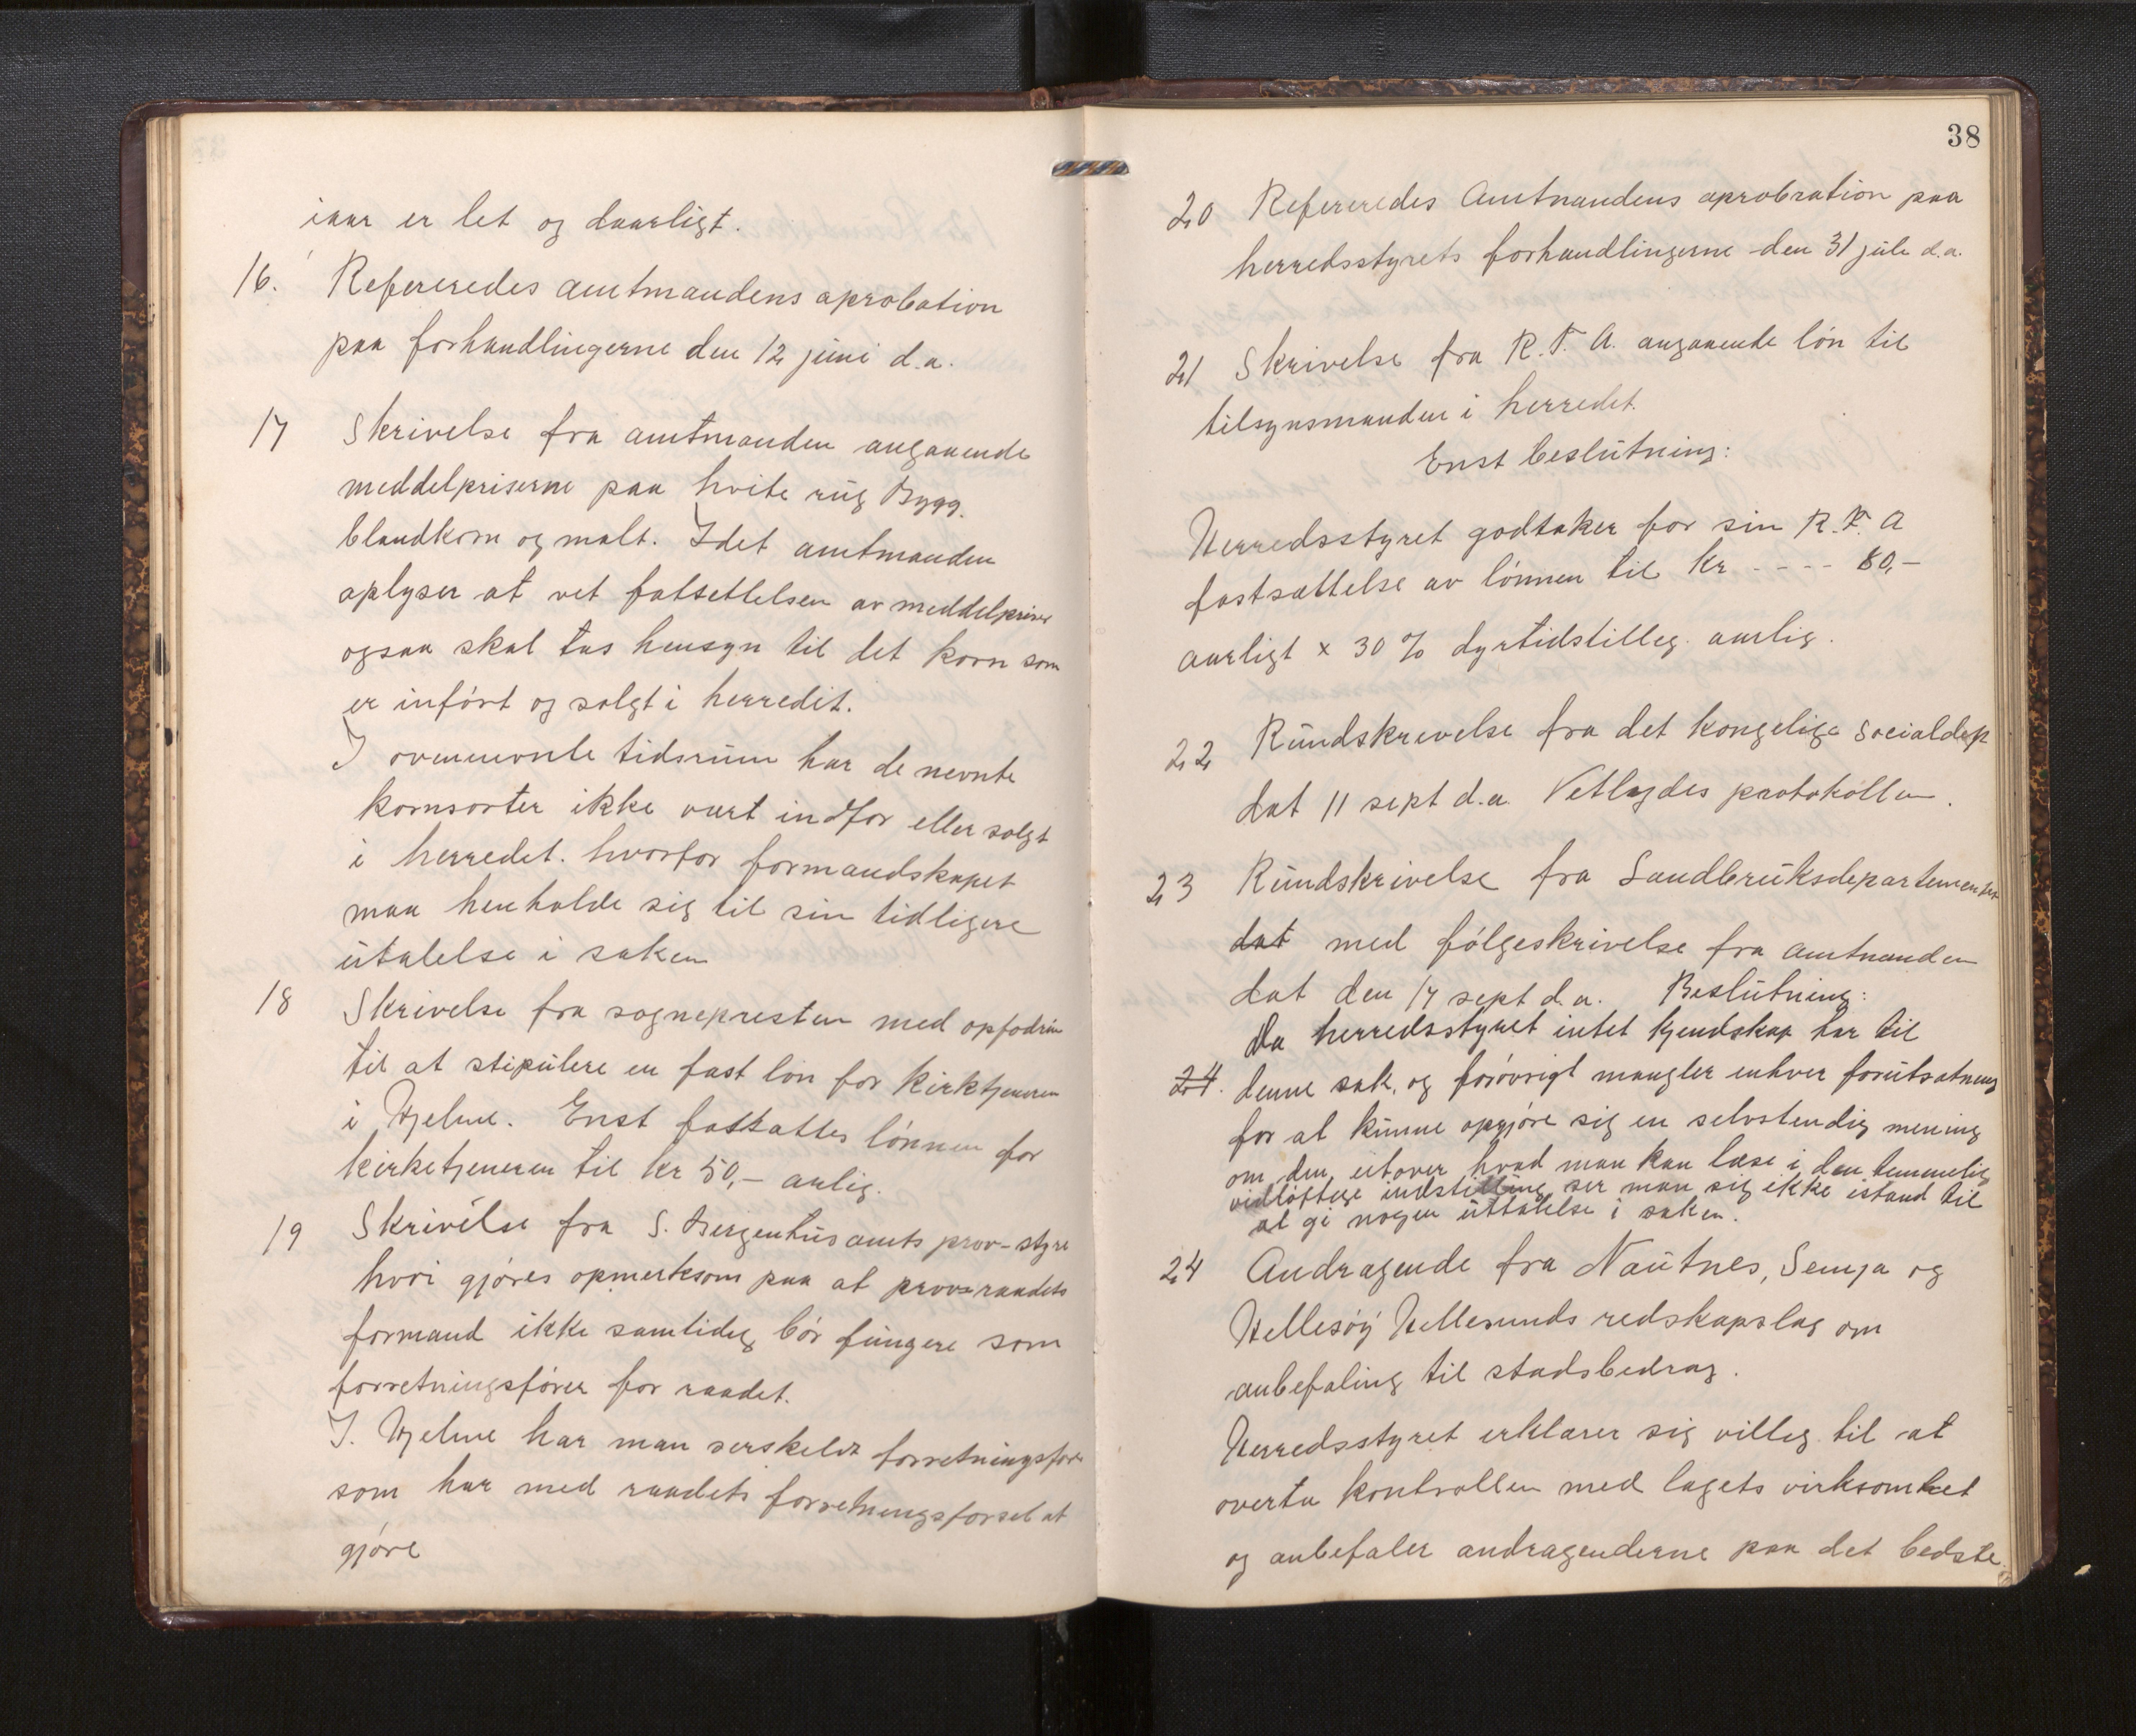 iaar er let og daarligt.
16. Refereredes amtmandens aprobation
paa forhandlingerne den 12 juni d.a.
17 Skrivelse fra amtmanden angaaende
meddelpriserne paa hvite rug Bygg.
blandkorn og malt. Idet amtmanden
oplyser at vet fatsettelsen av meddelpriser
ogsaa skal tas hensyn til det korn som
er infört og solgt i herredit.
I ovennevnte tidsrum har de nevnte
kornsorter ikke vært indfør eller solgt
i herredet. hvorfor formandskapet
maa henholde sig til sin tidligere
utalelse i saken
18 Skrivelse fra sognepresten med opfodrin
til at stipulere en fast løn for kirktjeneren
i Hjelme. Enst fattattes lønnen for
kirketjeneren til kr 50,- arlig.
19 Skrivelse fra S. Bergenhus amts prov-styre
hvori gjøres opmerksom paa at provraadets
formand ikke samtideg bør fungere som
forretningsfører for raadet.
I. Hjelme har man serskeldt forretningsfør
som har med raadets forretningsførsel at
gjøre
38
20 Refereredes Amtmandens aprobration paa
herredsstyrets forhandlingerne den 31 juli d.a.
21 Skrivelse fra R.F.A. angaaende løn til
tilsynsmanden i herredet.
Enst beslutning:
Herredsstyret godtaker for sin R.F.A
fastsættelse av lønnen til kr - - - - 80,-
aarligt x 30 % dyrtidstilleg aarlig.
22 Rundskrevelse fra det kongelige Socialdep
dat 11 sept d.a. Vetlagdes protokollen.
23 Rundskrivelse fra Landbruksdepartementet
dat med følgeskrivelse fra amtmanden
dat den 17 sept d.a. Beslutning:
Da herredsstyret intet kjendskap har til
24. denne sak, og forøvrigt mangler enhver forutsatning
for at kunne opgjøre sig en selvstendig mening
om den, utover hvad man kan læse i den temmelig
vidløftige indstilling ser man sig ikke istand til
at gi nogen uttalelse i saken.
24 Andragende fra Nautnes, Semja og
Hellesøy Hellesunds redskapslag om
anbefaling til stadsbedrag.
Herredsstyret erklærer sig villeg til at
overta kontrollen med lagets virksomhet
og anbefaler andragenderne paa det bedste.